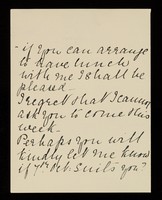 - if you can arrange
to have lunch
with me I shall be
pleased -
I regret that I cannot
ask you to come this
week -
Perhaps you will
kindly let me know
if 7th Feb. suits you?